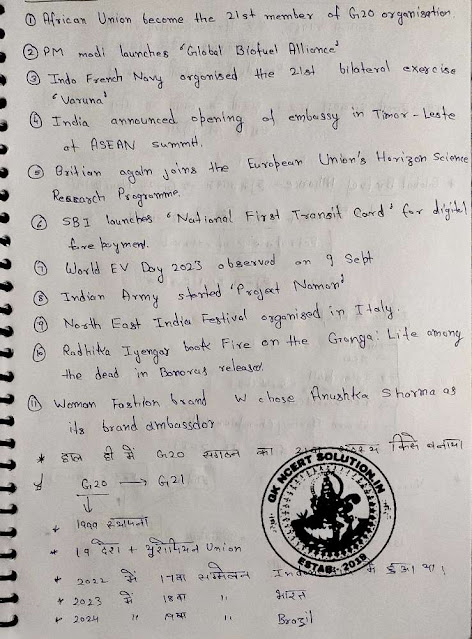 ① African Union become the 21st member of G20 organisation.
② PM modi launches 'Global Biofuel Alliance'
③ Indo French Navy organised the 21st bilateral exercise
'Varuna'
④ India announced opening of embassy in Timor-Leste
at ASEAN summit.
⑤ Britian again joins the European Union's Horizon Science
Research Programme.
⑥ SBI launches 'National First Transit Card' for digital
fare payment.
⑦ World EV Day 2023 observed on 9 Sept
⑧ Indian Army started 'Project Naman'
⑨ North East India Festival organised in Italy.
⑩ Radhika Iyengar book Fire on the Ganga: Life among
the dead in Banaras release.
⑪ Woman Fashion brand W chose Anushka Sharma as
its brand ambassdor
* हाल ही में G20 संगठन का किसे बनाया
G20 → G21
* 1999 स्थापना
* 19 देश + यूरोपियन Union
* 2022 में 17वा सम्मेलन में हुआ था।
* 2023 में 18वा " भारत
* 2024 " 19वा " Brazil
GK NCERT SOLUTION.IN
ESTAB. 2019